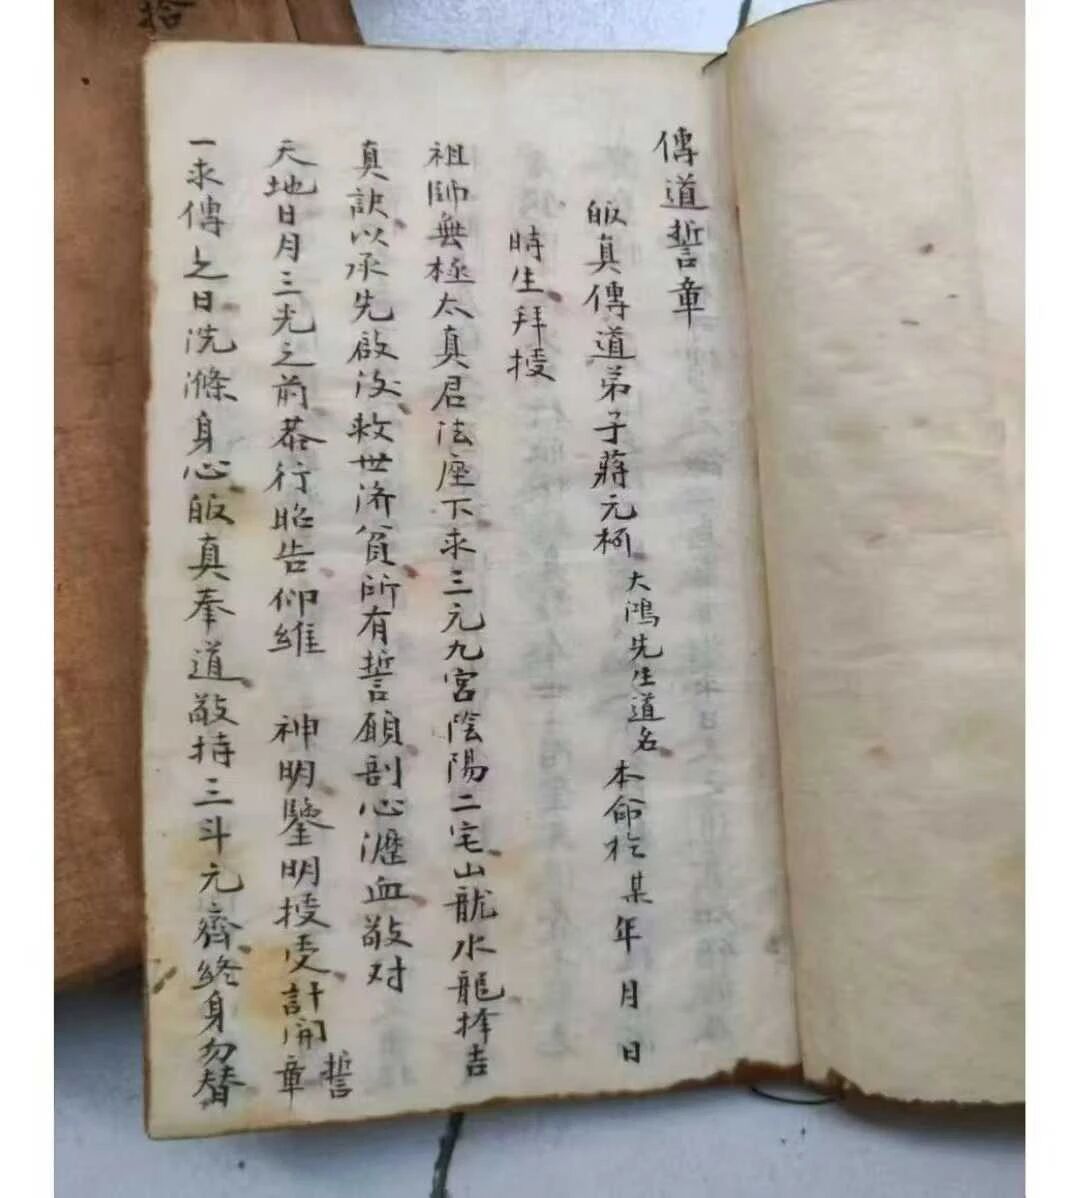 拾
傳道誓章
皈真傳道弟子蔣元柯大鴻先生道名本命於某年月日
時生拜授
祖師無極太真君法座下求三元九宮陰陽二宅山龍水龍擇吉
真訣以承先啟後救世济貧所有誓願剖心瀝血敬对
天地日月三光之前恭行昭告仰維 神明鑒明授受計開誓章
一求傳之日洗滌身心皈真奉道敬持三斗元齊終身勿替